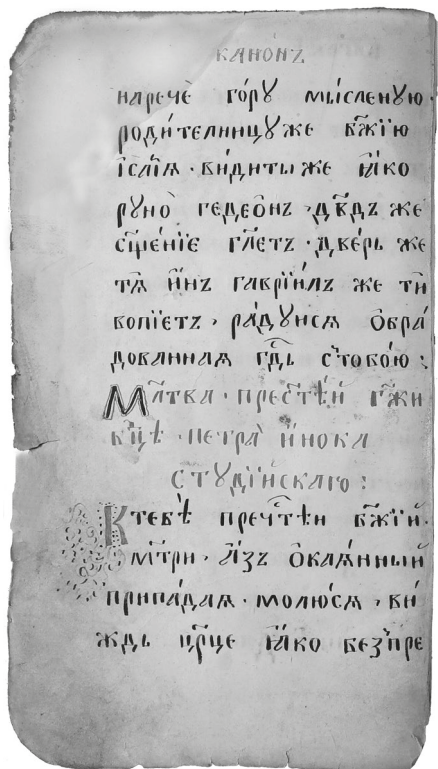 канѡ́нъ
наречѐ го́ру мы́сленую
роди́телницу же бж҃їю
і҆саі́ꙗ · ви́дитъ же ꙗ҆́ко
руно̀ гедеѡ́нъ · дв҃дъ же
сщ҃е́нїе гл҃етъ · две́рь же
тѧ̀ и҆́нъ гаврїи́лъ же ти̑
вопїе́тъ · ра́дуисѧ ѻ҆бра́
дованнаѧ гд҇ь с̾тобо́ю :
Мл҃тва · прест҃ѣ́й гж҃и
бц҃ѣ · петра̀ и҆́нока
студі́йскаго :
К тебѣ̀ преч҇тѣ́и бж҃їи
мт҃ри · а҆́зъ ѻ҆каѧ́нный
припа́даѧ · молю́сѧ · ви́
ждь цр҃це ꙗ҆́ко без̾пре